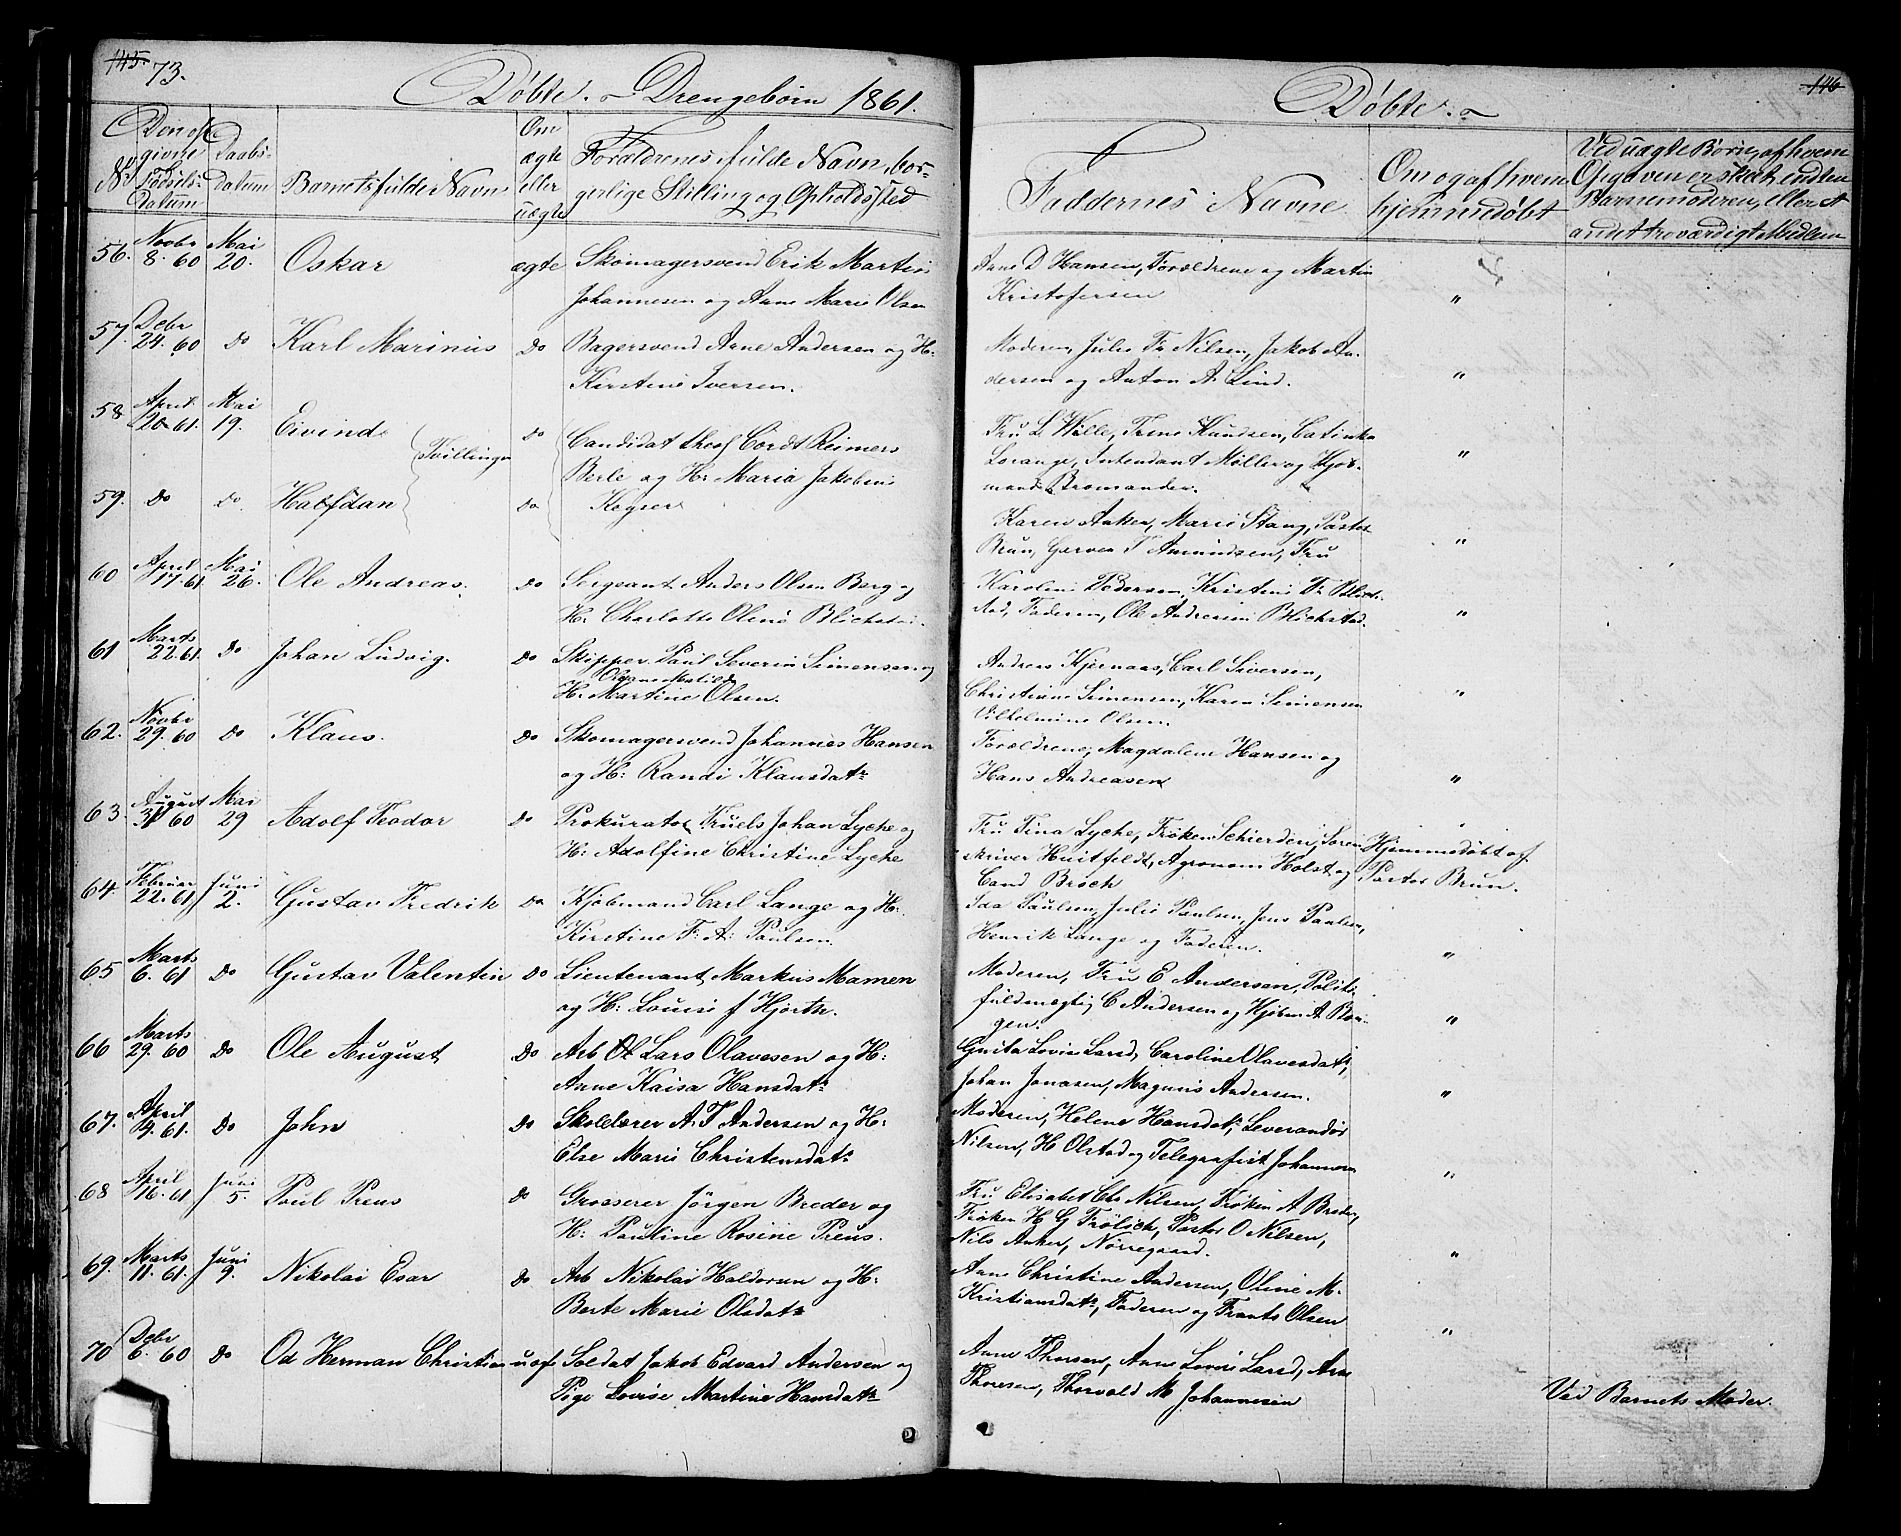 145. 73.
Døbte. Drengebørn 1861.
No
Den opgivne Fødsels-Datum
Daabs-Datum
Barnets fulde Navn
Om ægte eller uægte
Forældrenes fulde Navn, borgerlige Stilling og Opholdssted
56. Novbr 8. 60 Mai 20. Oskar ægte Skomagersvend Erik Martin
Johannesen og Anne Marie Olsen
57. Debr 24. 60 Do Karl Marinus Do Bagersvend Arne Andersen og H:
Kirstine Iversen.
58 April 20 61. Mai 19. Eivind Tvillinger Do Candidat theol Cordt Reimers
Berle og H: Maria Jakobine
59. Do Do Halfdan Do
60 April 17. 61 Mai 26. Ole Andreas. Do Sergeant Anders Olsen Berg og
H: Charlotte Olene
61 Marts 22. 61. Do Johan Ludvig. Do Skipper Paul Severin Simensen og
H: Martine Olsen.
62. Novbr 29. 60 Do Klaus. Do Skomagersvend Johannes Hansen
og H: Randi Klausdatr
63. August 31 60 Mai 29 Adolf Teodor Do Prokurator Truels Johan Lyche og
H: Adolfine Christine Lyche
64. Februar 22. 61 Juni 2. Gustav Fredrik Do Kjøbmand Carl Lange og H:
Kirstine F: A: Paulsen
65 Marts 6. 61 Do Gustav Valentin Do Lieutenant Markus Mamen
og H: Louise f Hjorth.
66 Marts 29. 60 Do Ole August Do Arb Lars Olavesen og H:
Anne Kaisa Hansdatr
67. April 4. 61. Do John Do Skolelærer A. T Andersen og H:
Else Marie Christensdatr
68 April 16. 61 Juni 5. Poul Preus Do Grosserer Jørgen Breder og
H: Pauline Rosine Preus.
69. Marts 11. 61. Juni 9. Nikolai Esar Do Arb Nikolai Haldorsen og H:
Berte Marie Olsdatr
70 Debr 6. 60 Do Od Herman Christian uægte Soldat Jakob Edvard Andersen og
Pige Lovise Martine Hansdatr
146
Døbte.
Faddernes Navne
Om og af hvem hjemmedøbt
Ved uægte Børn, af hvem Opgaven er skeet, enten Barnemoderen, eller et andet troværdigt Medlem
Anne D Hansen, Forældrene og Martin
Kristofersen "
Moderen, Julie Fr Nilsen, Jakob An-
dersen og Anton A. Lind. "
Fru L Wille, Trine Knudsen, Catinka
Lorange, Intendant Møller og Kjøb-
mand Bromander. "
Karen Anker, Marie Stang, Pastor
Brun, Garver T Amundsen, Fru "
Karoline Pedersen, Kristine Fr Blich-
stad, Faderen, Ole Andresen Blichstad. "
Andreas Kjernaas, Carl Siversen,
Christiane Simensen, Karen Simensen
Vilhelmine Olsen. "
Forældrene, Magdalene Hansen og
Hans Andreasen "
Fru Tina Lyche, Frøken Schierden, Soren-
skriver Huitfeldt, Agronom Holst og
Cand Broch
Hjemmedøbt af
Pastor Brun.
Ida Paulsen, Julie Paulsen, Jens Paulsen,
Henrik Lange og Faderen. "
Moderen, Fru E Andersen, Politi-
fuldmægtig C Andersen og Kjøbm A Bon-
gen. "
Gusta Lovise Larsd, Caroline Olavesdatr,
Johan Jonasen, Magnus Andersen. "
Moderen, Helene Hansdtr, Leverandør
Nilsen, H Olstad og Telegrafist Johannesen "
Fru Elisabet Chr Nilsen, Frøken A Breder,
Frøken H G Frölich, Pastor O Nilsen,
Nils Anker, Nørregaard. "
Anne Christine Andersen, Oline M.
Kristiansdatr, Faderen og Frants Olsen "
Anne Thorsen, Anne Lovise Larsd, Arne
Thoresen, Thorvald M Johannesen
Ved Barnets Moder.